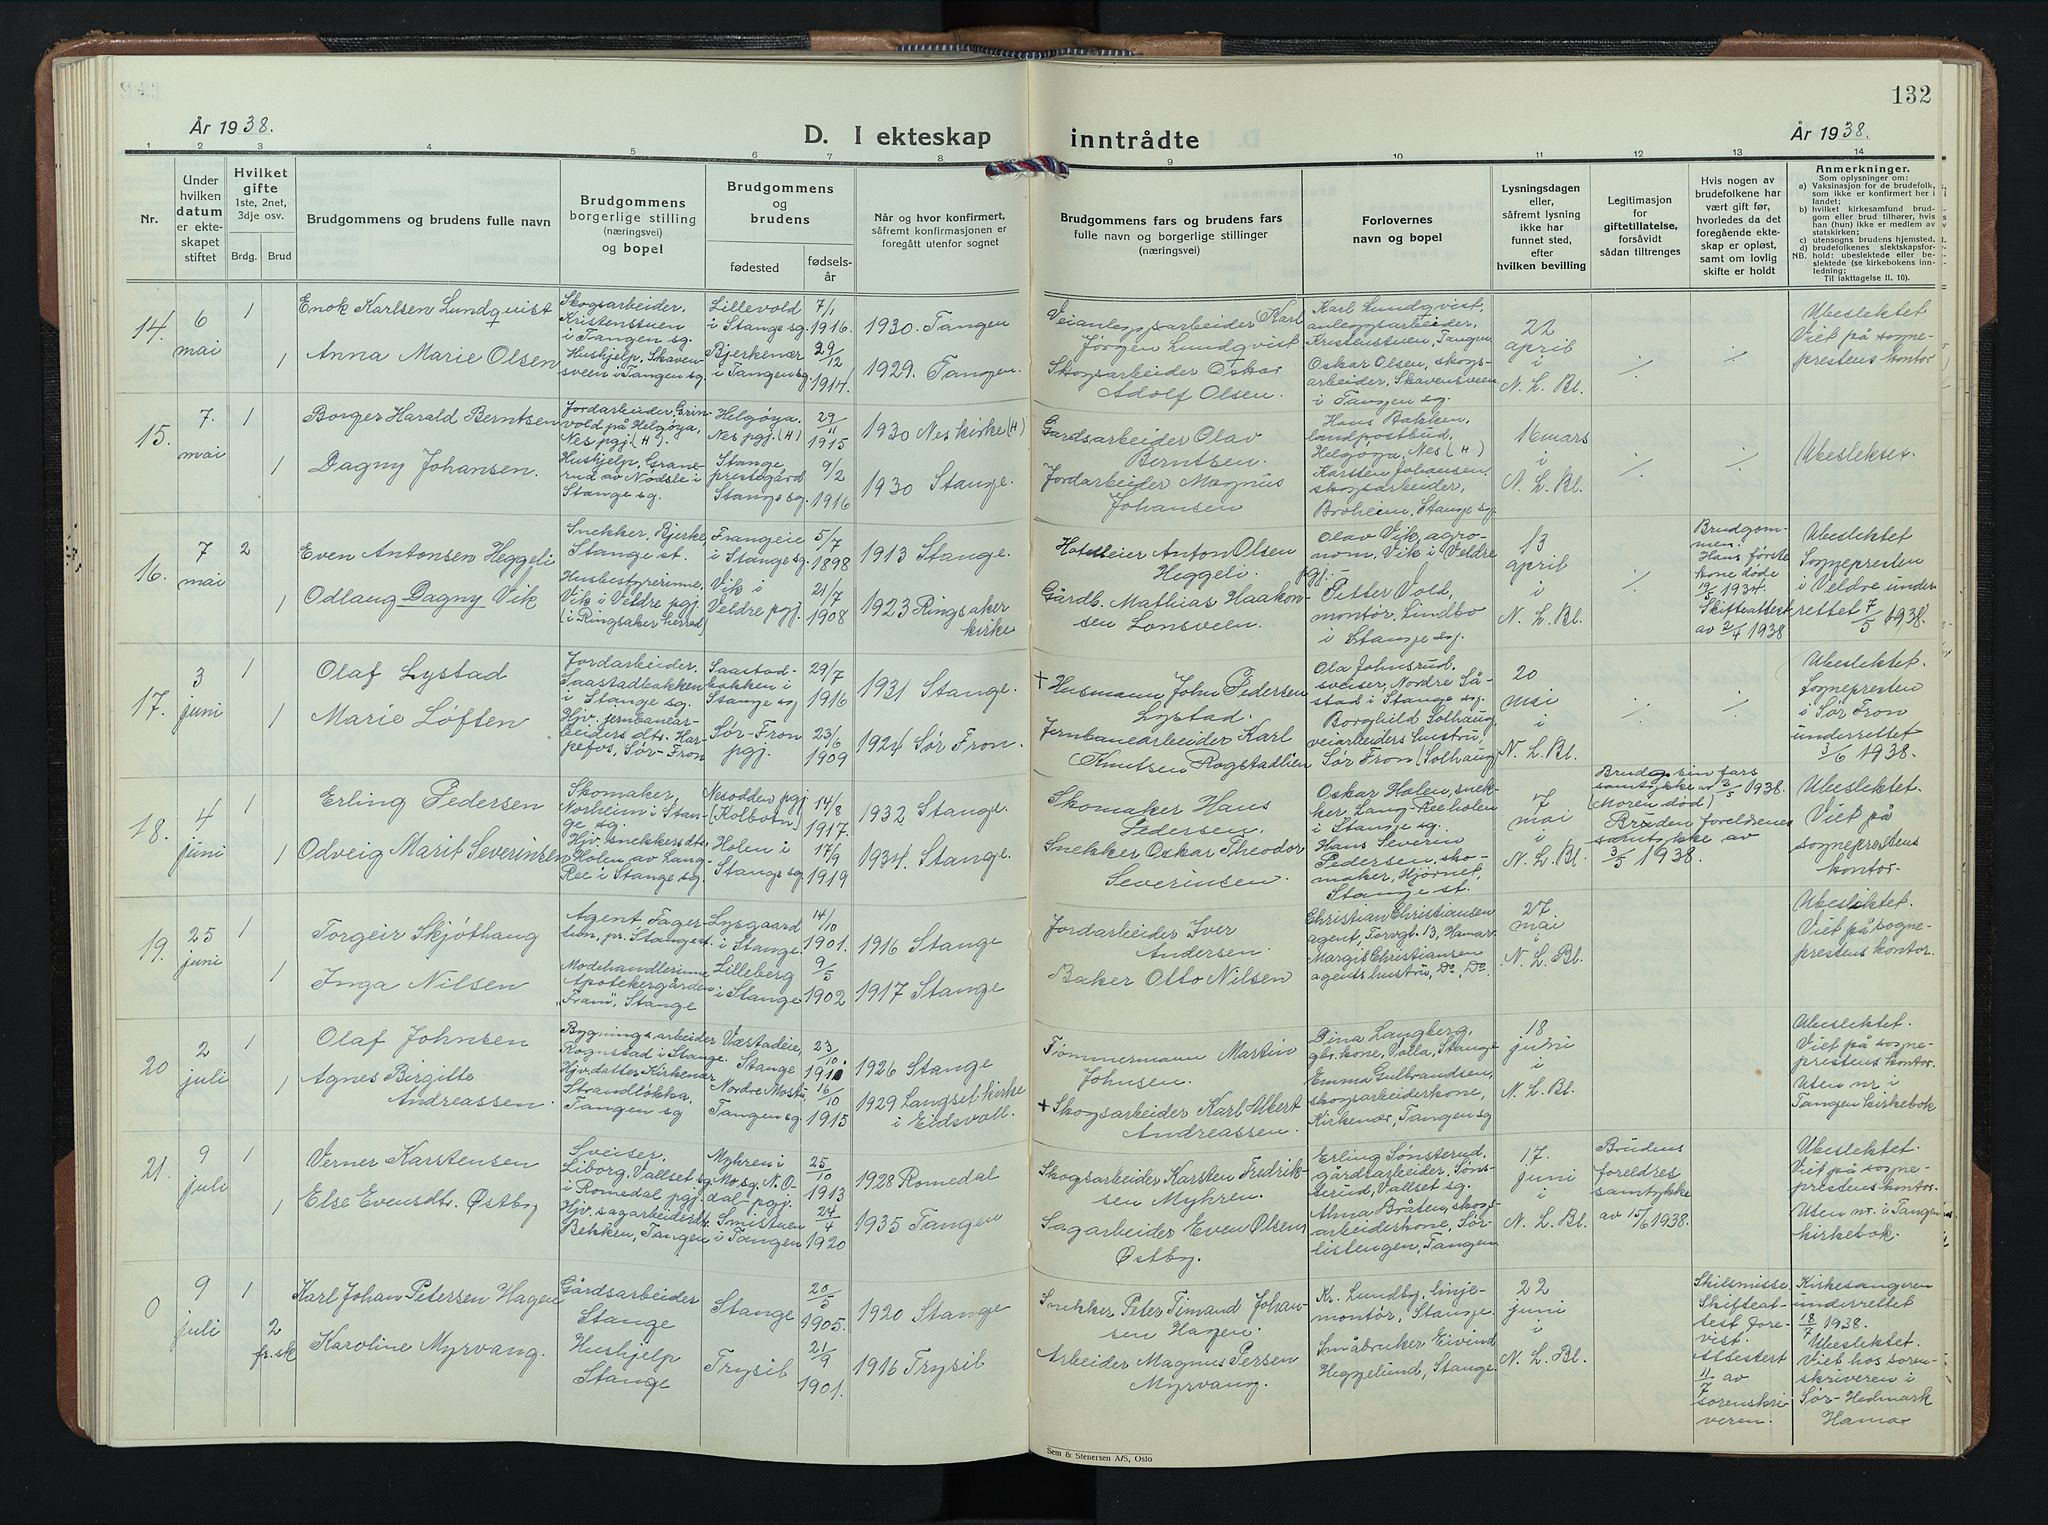 År 1938.
D. I ekteskap inntrådte
132
År 1938.
1 2 3 4 5 6 7 8 9 10 11 12 13 14
Nr.
Under
hvilken
datum
er ekte-
skapet
stiftet
Hvilket
gifte
1ste, 2net,
3dje osv.
Brdg. Brud
Brudgommens og brudens fulle navn
Brudgommens
borgerlige stilling
(næringsvei)
og bopel
Brudgommens
og
brudens
fødested
fødsels-
år
Når og hvor konfirmert,
såfremt konfirmasjonen er
foregått utenfor sognet
Brudgommens fars og brudens fars
fulle navn og borgerlige stillinger
(næringsvei)
Forlovernes
navn og bopel
Lysningsdagen
eller,
såfremt lysning
ikke har
funnet sted,
efter
hvilken bevilling
Legitimasjon
for
giftetillatelse,
forsåvidt
sådan tiltrenges
Hvis nogen av
brudefolkene har
vært gift før,
hvorledes da det
foregående ekte-
skap er opløst,
samt om lovlig
skifte er holdt
Anmerkninger.
Som oplysninger om:
a) Vaksinasjon for de brudefolk,
som ikke er konfirmert her i
landet;
b) hvilket kirkesamfund brud-
gom eller brud tilhører, hvis
han (hun) ikke er medlem av
statskirken;
c) utensogns brudens hjemsted.
d) brudefolkenes slektskapsfor-
NB. hold: ubeslektede eller be-
slektede (se kirkebokens inn-
ledning;
Til iakttagelse II, 10).
14.
6
mai
1
Enok Karlsen Lundquist
Skogsarbeider,
Kristenstuen
i Tangen sg.
Lillevold
i Stange sg.
7/1
1916.
1930. Tangen
1
Anna Marie Olsen
Hushjelp, Skaven-
sveen i Tangen sg.
Bjerkenær
i Tangen sg
29/12
1914.
1929. Tangen.
Veianleggsarbeider Karl
Jørgen Lundqvist
Skogsarbeider Oskar
Adolf Olsen.
Karl Lundqvist,
anleggsarbeider,
Kristenstuen, Tangen
Oskar Olsen, skogs-
arbeider, Skavensveen
i Tangen sg.
22
april
i
N. L. Bl.
Ubeslektet
Viet på sogne-
prestens kontor
15.
7.
mai
1
Borger Harald Berntsen
Jordarbeider, Grin-
vold på Helgøya,
Nes pgj. (H).
Helgøya,
Nes pgj. (H)
29/11
1915
1930 Nes kirke (H)
1
Dagny Johansen.
Hushjelp, Grane-
rud av Nødsle i
Stange sg.
Stange
prestegård
Stange sg.
9/2
1916
1930 Stange.
Gårdsarbeider Olav
Berntsen.
Jordarbeider Magnus
Johansen
Hans Bakken,
landpostbud,
Helgøya, Nes (H)
Karsten Johansen,
skogsarbeider,
Broheim, Stange sg.
16 mars
i
N. L. Bl.
Ubeslektet.
16.
7
mai
2
Even Antonsen Heggeli
Snekker, Bjerke,
Stange st.
Frangeie
i Stange sg.
5/7
1898
1913 Stange.
1
Odlaug Dagny Vik
Husbestyrerinne,
Vik i Veldre pgj.
(i Ringsaker herred)
Vik i
Veldre pgj.
21/7
1908
1923 Ringsaker
kirke
Hotelleier Anton Olsen
Heggeli.
Gårdb. Mathias Haakon-
sen Lonsveen.
Olav Vik, agro-
nom, Vik i Veldre
pgj.
Petter Vold,
montør, Lindbo
i Stange sg.
13
april
i
N. L. Bl.
Brudgom-
men:
Hans første
kone døde
19/5 1934.
Skifteattest
av 2/4 1938
Ubeslektet
Sognepresten
i Veldre under-
rettet 7/5 1938.
17.
3
juni
1
Olaf Lystad
Jordarbeider,
Saastadbakken
i Stange sg.
Saastad-
bakken i
Stange sg
29/7
1916
1931 Stange.
1
Marie Løften
Hjv. jernbanear-
beiders dtr. Har-
pefos, Sør-Fron
Sør-Fron
pgj.
23/6
1909
1924 Sør Fron.
+ Husmann John Pedersen
Lystad.
Jernbanearbeider Karl
Knutsen Rogstadlien
Ola Johnsrud,
sveiser, Nordre Så-
stad i Stange sg.
Borghild Solhaug,
veiarbeiders hustru,
Sør Fron (Solhaug)
20
mai
i
N. L. Bl.
Ubeslektet.
Sognepresten
i Sør Fron
underrettet
3/6 1938.
18.
4
juni
1
Erling Pedersen
Skomaker,
Norheim i Stan-
ge sg.
Nesodden pgj.
(Kolbotn)
14/8
1917.
1932 Stange.
1
Odveig Marit Severinsen
Hjv. snekkers dtr.
Holen av Lang-
Ree i Stange sg.
Holen i
Stange sg
17/9
1919
1934. Stange.
Skomaker Hans
Pedersen.
Snekker Oskar Theodor
Severinsen.
Oskar Holen, snek-
ker, Lang-Reeholen
i Stange sg.
Hans Severin
Pedersen, sko-
maker, Hjørnet,
Stange st.
7
mai
i
N. L. Bl.
Brudg. sin fars
samtykke av 2/5 1938.
(Moren død)
Bruden foreldrenes
samtykke av
3/5 1938.
Ubeslektet.
Viet på
sogneprestens
kontor.
19.
25
juni
1
Torgeir Skjøthaug
Agent, Fager-
lien, pr. Stange st
Lysgaard
i Stange.
14/10
1901.
1916 Stange
1
Inga Nilsen
Modehandlerinne
Apotekergården
"Fram", Stange
Lilleberg
i Stange
9/5
1902
1917 Stange
Jordarbeider Iver
Andersen
Baker Otto Nilsen
Christian Christiansen
agent, Torvgt. 13, Hamar.
Margit Christiansen
agents hustru, Do, Do.
27.
mai
i
N. L. Bl.
Ubeslektet.
Viet på sogne-
prestens kontor.
20
2
juli
1
Olaf Johnsen
Bygningsarbeider
Rognstad i Stange.
Værstadeie,
Stange
23/10
1910
1926 Stange
1
Agnes Birgitte
Andreassen.
Hjv. datter Kirkenær
Strandløkka,
Tangen sg
Nordre Mostu,
Tangen sg.
16/10
1915
1929 Langset kirke
i Eidsvoll.
Tømmermann Martin
Johnsen.
+ Skogsarbeider Karl Albert
Andreassen.
Dina Langberg,
gbr. kone, Volla, Stange
Emma Gulbrandsen,
skogsarbeiderkone,
Kirkenær, Tangen sg
18
juni
i
N. L. Bl.
Ubeslektet.
Viet på sogne-
prestens kontor.
Uten nr i
Tangen kirkebok
21.
9
juli
1
Verner Karstensen
Sveiser,
Liborg, Vallset sg
i Romedal pgj.
Myhren i
Mo sg. N. O-
dal-pgj.
25/10
1913
1928 Romedal
1
Else Evensdtr. Østby
Hjv. sagarbeiderdtr.
Bekken, Tangen
Smistuen
i Tangen
24/4
1920
1935 Tangen
Skogsarbeider Karsten Fredrik-
sen Myhren.
Sagarbeider Even Olsen
Østby.
Erling Sønsterud,
gårdsarbeider, Søns-
terud, Vallset sg.
Alma Bråten, skogs-
arbeiderkone, Sør-
listengen, Tangen
17.
juni
i
N. L. Bl.
Brudens
foreldres
samtykke
av 15/6 1938.
Ubeslektet.
Viet på sogne-
prestens kontor.
Uten nr. i Tangen
kirkebok.
0
9
juli
1
Karl Johan Petersen Hagen
Gårdsarbeider
Stange
Stange
20/5
1905.
1920 Stange
2
fr. sk
Karoline Myrvang.
Hushjelp
Stange
Trysil
21/9
1901.
1916 Trysil
Snekker Peter Timand Johan-
sen Hagen.
Arbeider Magnus Persen
Myrvang.
Kr. Lundby, linje-
montør, Stange.
Småbruker Eivind
Heggelund, Stange
22
juni
i
N. L. Bl.
Skilsmisse
Skifteat-
test fore-
vist.
Attestert
11/7 av
sorenskri-
veren.
Kirkesangeren
underrettet
18/7 1938.
Ubeslektet.
Viet hos soren-
skriveren i
Sør-Hedmark
Hamar
Sem & Stenersen A/S, Oslo